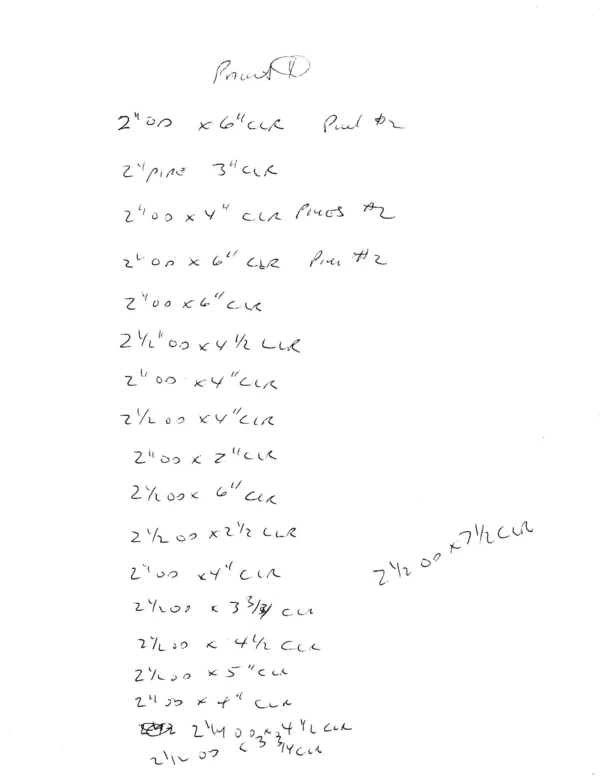 2" OD x 6" CLR #2
2" PIPE 3" CLR
2" OD x 4" CLR PIPES #2
2" OD x 6" CLR #2
2" OD x 6" CLR
2 1/2" OD x 4 1/2 CLR
2" OD x 4" CLR
2 1/2 OD x 4" CLR
2" OD x 2" CLR
2 1/2 OD x 6" CLR
2 1/2 OD x 2 1/2 CLR
2 1/2 OD x 7 1/2 CLR
2" OD x 4" CLR
2 1/2 OD x 3 3/4 CLR
2 1/2 OD x 4 1/2 CLR
2 1/2 OD x 5" CLR
2" OD x 4" CLR
2 1/4 OD x 4 1/2 CLR
2 1/2 OD x 3 3/4 CLR